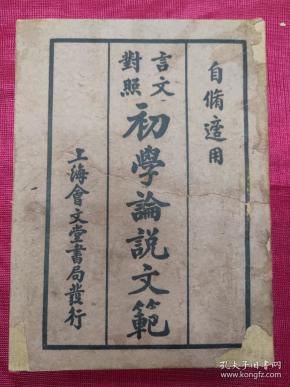 自脩適用
言文
對照
初學論說文範
上海會文堂書局發行
孔夫子旧书网